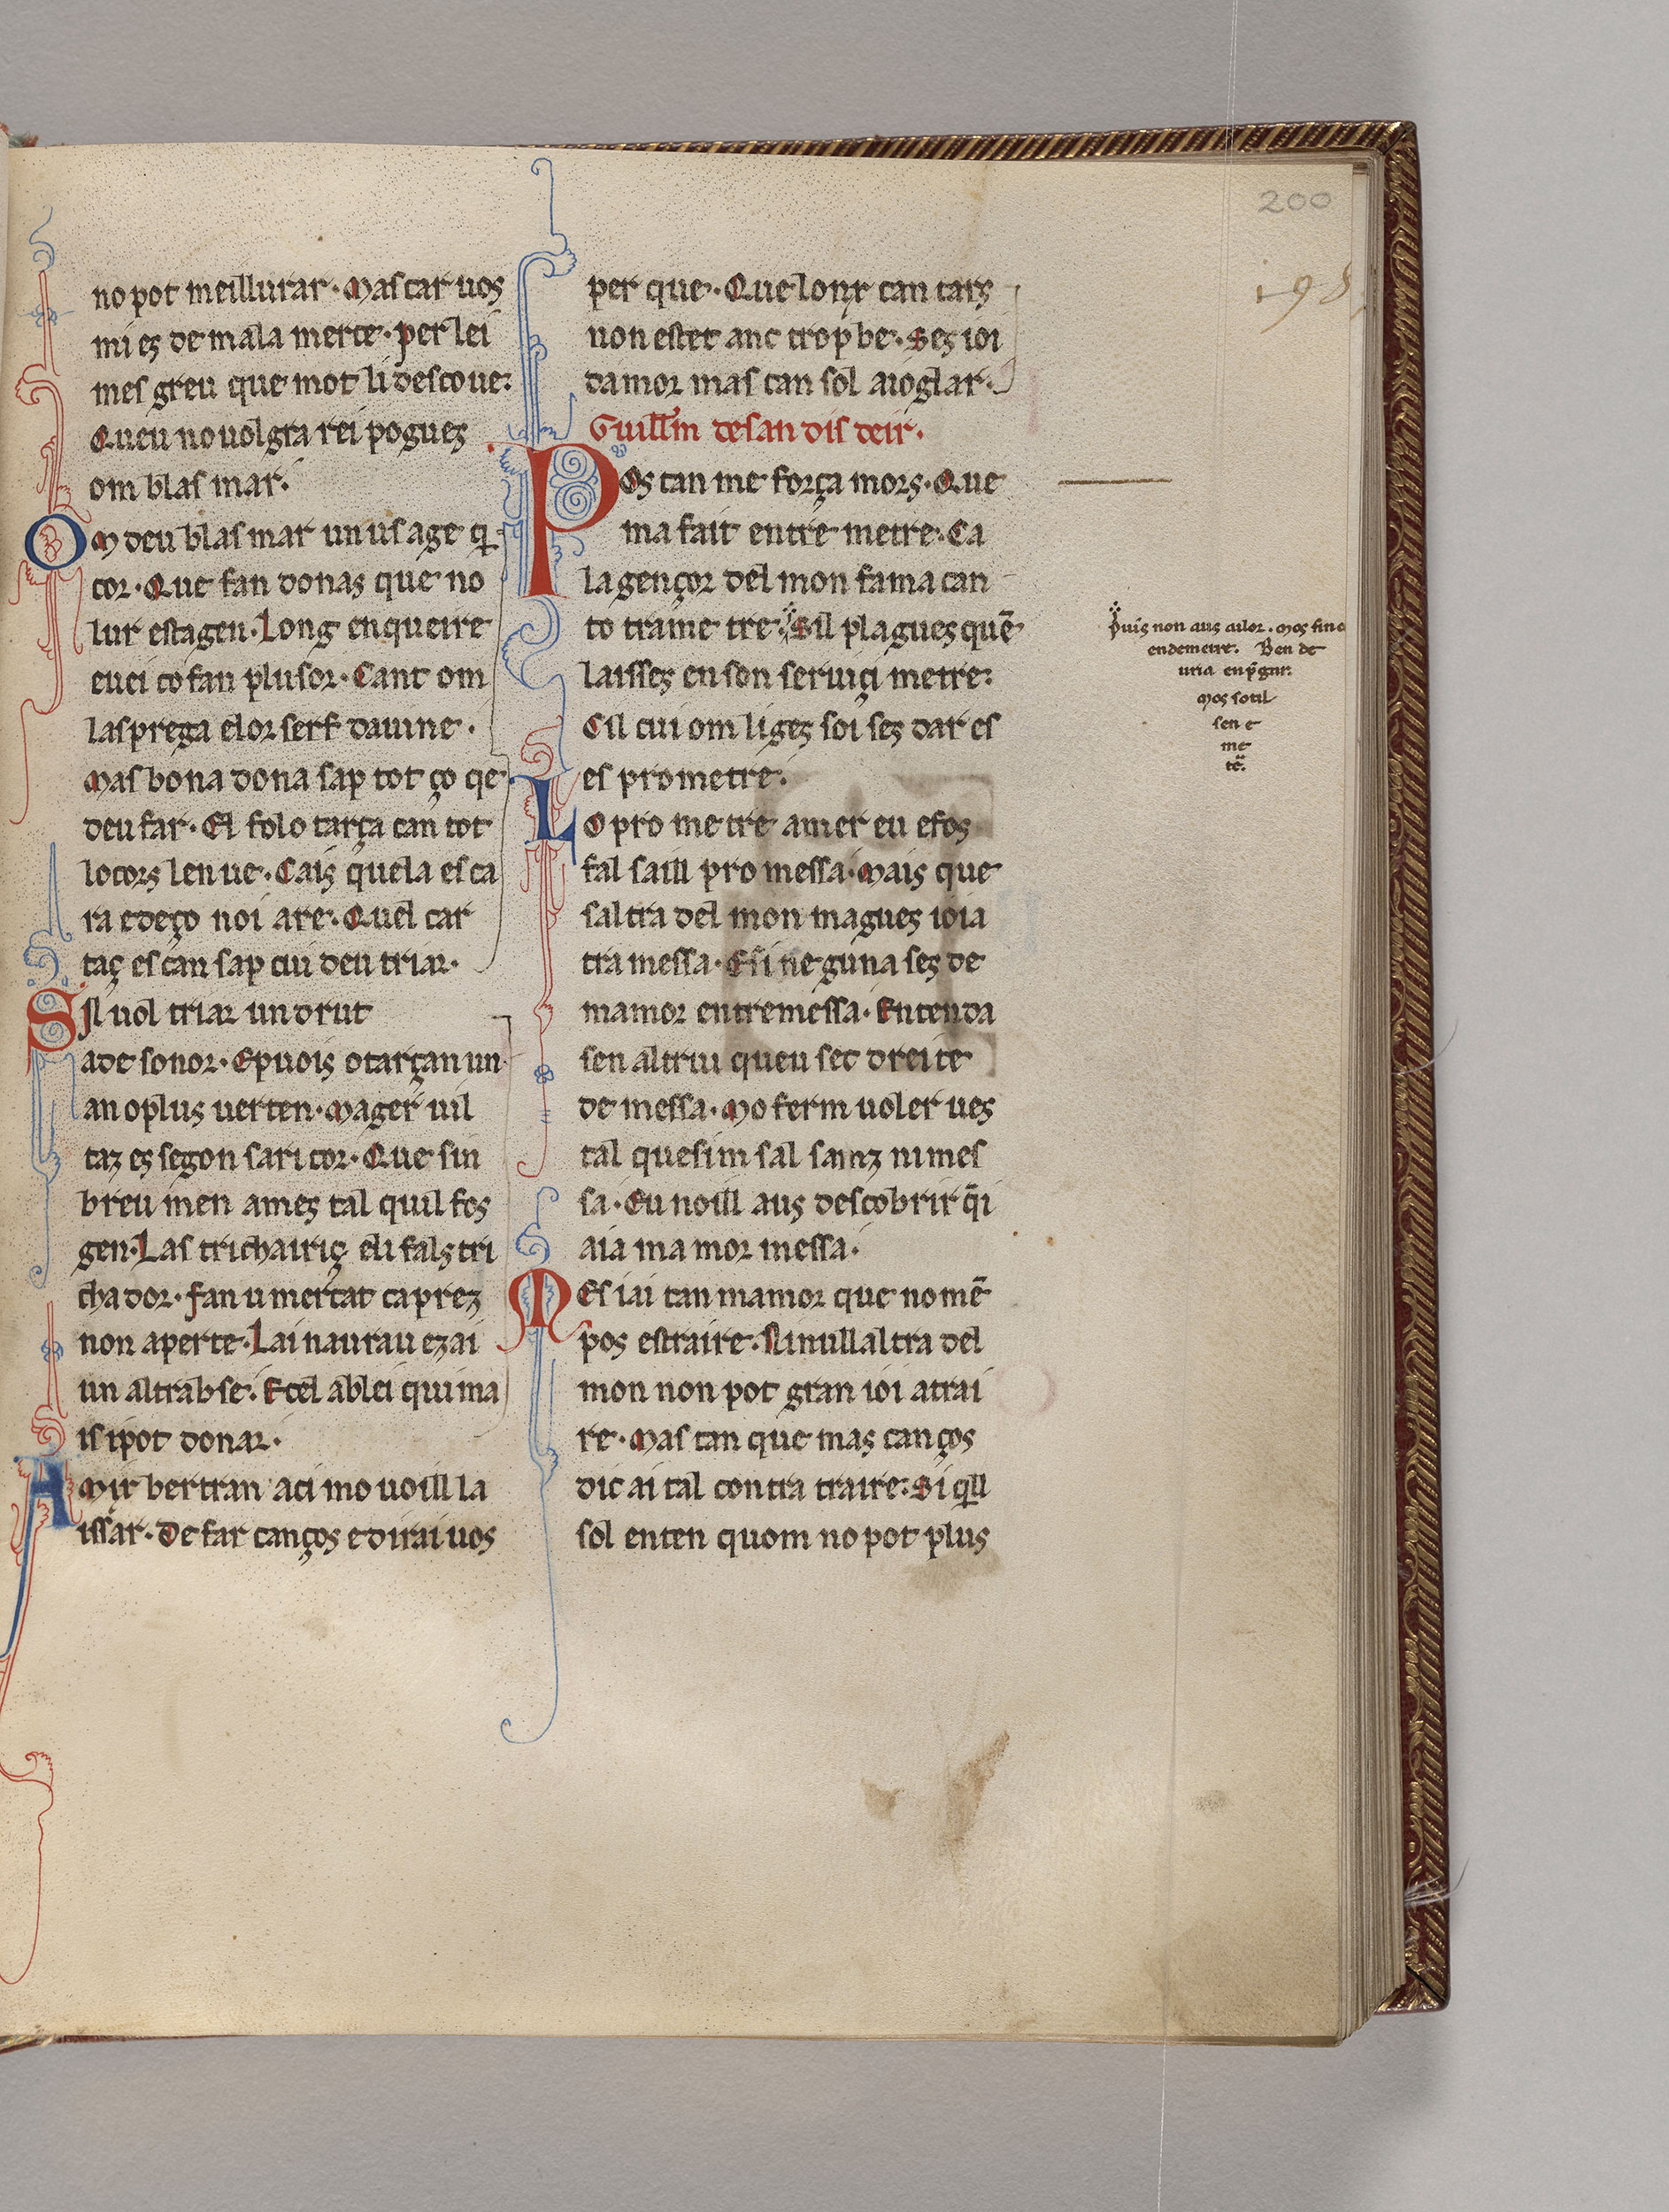 200
198
no pot meillurar · Mas car uos
mi es de mala merce · per lei
mes greu que mot li descoue:
Queu no uolgra rei pogues
om blasmar.
Om deu blasmar un usage q̄
cor · Que fan donas que no
lur estagen · Long enqueire
euei co fan plusor · Cant om
las prega e lor serf dauine ·
Mas bona dona sap tot ço qe
deu far · El folo tarça can tot
lo cors len ue · Cais quela es ca
ra e deço noi a re · Quel car
taç es can sap cui deu triar ·
Sil uol triar un drut
a de sonor · E puois o tarçan un
an o plus uerten · Mager uil
taz es segon sa ricor · Que sin
breu men ames tal quil fos
gen · Las trichairiç eli fals tri
chador · fan u mercat ca prez
non aperte · Lai naurau ez ai
un altrab se · E cel ab lei qui ma
is i pot donar ·
Amir bertran aci mo uoill la
issar · De far canços e dirai uos
per que · Que lonr can tars
non estet anc trop be · Ses ioi
damor mas can sol a ioglar ·
Guillm de san dis deir ·
Pos tan me força mors · Que
ma fait entre metre · Ca
la gençor del mon fama can
ço trame tre · Sil plagues quē
laisses en son seruiçi metre:
Cil cui om liges soi ses dar es
es prometre.
Lo pro metre amer eu e fos
fal saill pro messa · Mais que
saltra del mon magues ioia
tra messa · E si neguna ses de
mamor entremessa · Entenda
sen altrui queu sec dreite
de messa · Mo ferm uoler ues
tal quesim sal sainz ni mes
sa · Eu noill aus descobrir q̄i
aia mamor messa ·
Mes iai tan mamor que no mē
pos estraire · Ni null altra del
mon non pot gran ioi atrai
re · Mas tan que mas canços
dic ai tal contra traire: Si qll
sol enten quom no pot plus
Puis non aus ailor · Mos fins
endemetre. Ben de
uria en p̄gar.
Mos sotil
sen e
me
tē.